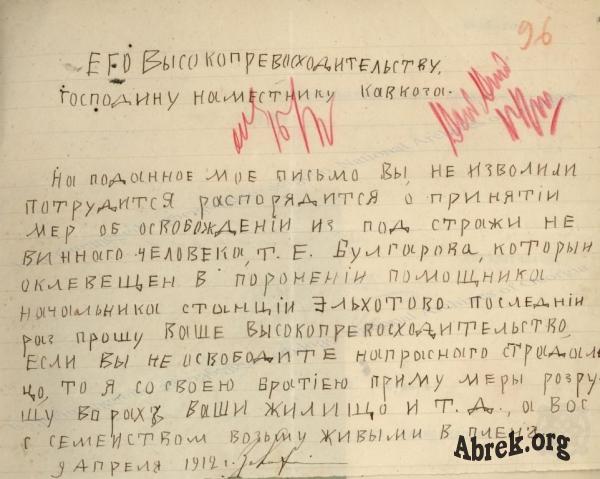 96
ЕГО ВЫСОКОПРЕВОСХОДИТЕЛЬСТВУ,
ГОСПОДИНУ НАМЕСТНИКУ КАВКОЗА.
НА ПОДАННОЕ МОЕ ПИСЬМО ВЫ, НЕ ИЗВОЛИЛИ
ПОТРУДИТСЯ РАСПОРЯДИТСЯ О ПРИНЯТІИ
МЕР ОБ ОСВОБОЖДЕНІИ ИЗ ПОД СТРАЖИ НЕ
ВИННАГО ЧЕЛОВЕКА, Т. Е. БУЛГАРОВА, КОТОРЫИ
ОКЛЕВЕЩЕН В ПОРОНЕНІИ ПОМОЩНИКА
НАЧАЛЬНИКА СТАНЦІИ ЭЛЬХОТОВО ПОСЛЕДНІИ
РАЗ ПРОШУ ВАШЕ ВЫСОКОПРЕВОСХОДИТЕЛЬСТВО,
ЕСЛИ ВЫ НЕ ОСВОБОДИТЕ НАПРАСНАГО СТРАДАЛЬ
ЦО, ТО Я СО СВОЕЮ БРАТІЕЮ ПРИМУ МЕРЫ РОЗРУ
ШУ ВО РАХЪ ВАШИ ЖИЛИЩО И Т. Д., А ВОС
С СЕМЕЙСТВОМ ВОЗЬМУ ЖИВЫМИ В ПЛЕНЪ
9 АПРЕЛЯ 1912 г.
Abrek.org